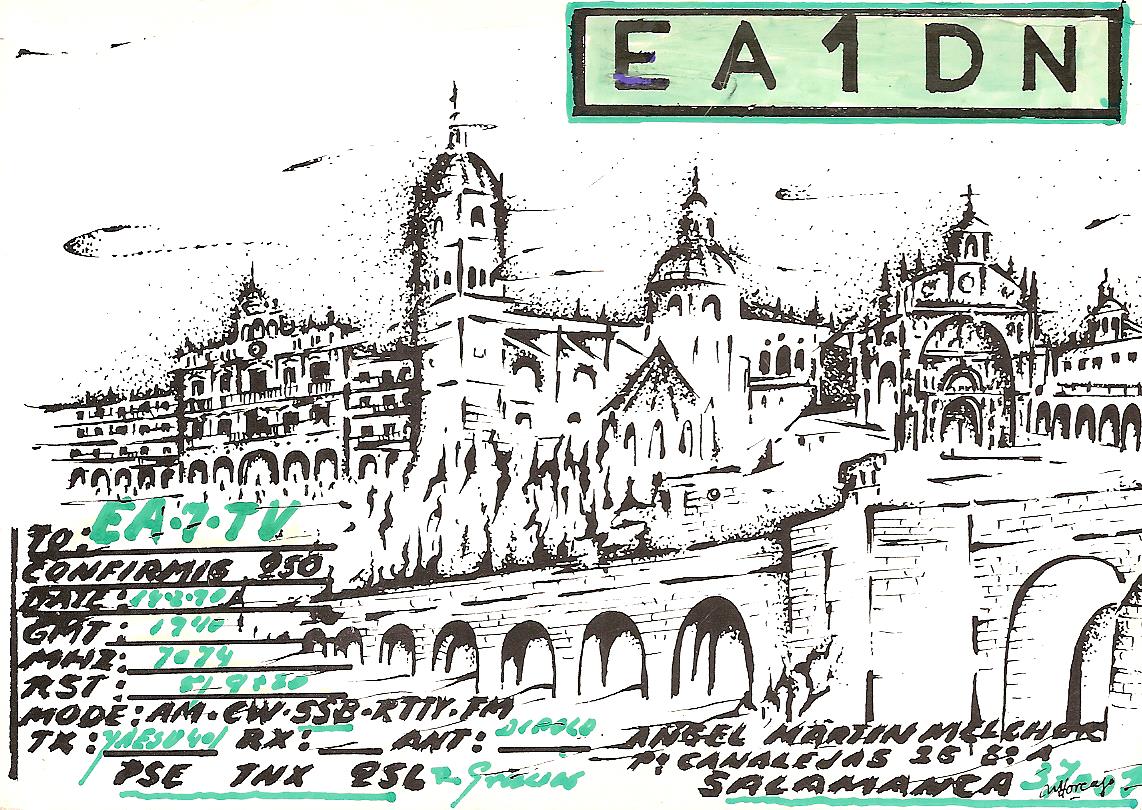 EA1DN
TO: EA·7·TV
CONFIRMIG QSO
DATE:
GMT: 1940
MHZ: 7074
RST:
MODE: AM·CW·SSB·RTTY·FM
TX: YAESU 401 RX: ANT: DIPOLO
PSE TNX QSL
ANGEL MARTIN MELCHOR
Pº CANALEJAS 26 6º A
SALAMANCA